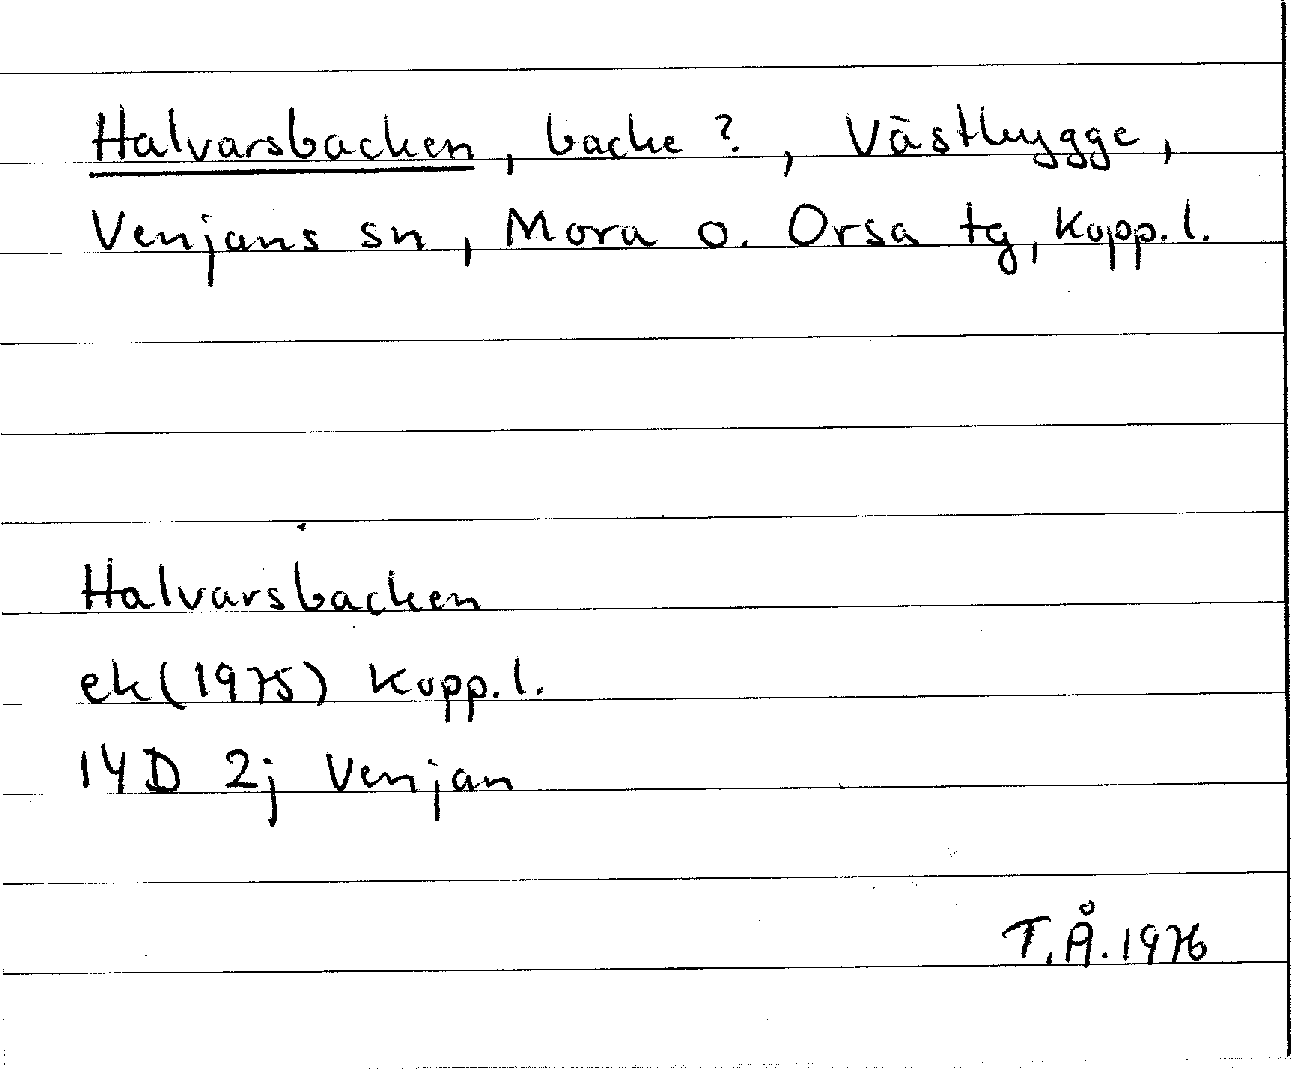 Halvarsbacken, backe?, Västbygge,
Venjans sn, Mora o. Orsa tg, Kopp. l.
Halvarsbacken
ek (1975) Kopp. l.
14D 2j Venjan
T.Å. 1976